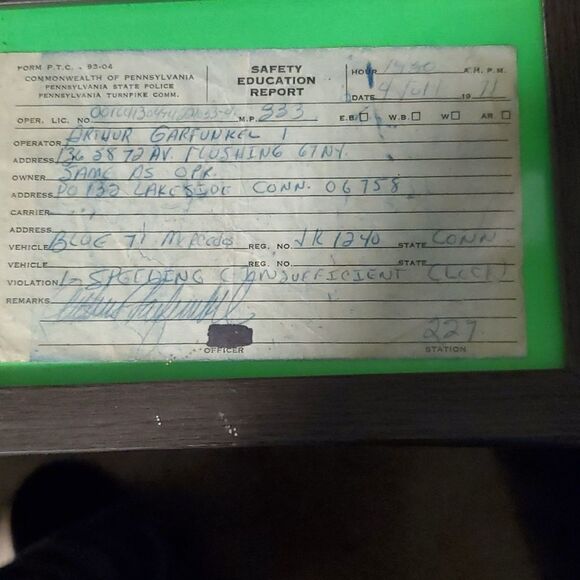 FORM P.T.C. - 93-04
COMMONWEALTH OF PENNSYLVANIA
PENNSYLVANIA STATE POLICE
PENNSYLVANIA TURNPIKE COMM.
SAFETY
EDUCATION
REPORT
HOUR A.M. P.M.
DATE 1971
OPER. LIC. NO. M.P. 333 E.B. W.B. W AR
OPERATOR ARTHUR GARFUNKEL
ADDRESS 136 58 72 AV. FLUSHING 67 NY.
OWNER SAME AS OPR.
ADDRESS PO 132 LAKESIDE CONN. 06758
CARRIER
ADDRESS
VEHICLE BLUE 71 REG. NO. JR 1240 STATE CONN
VEHICLE REG. NO. STATE
VIOLATION 1- SPEEDING (INSUFFICIENT CLOCK)
REMARKS
227
OFFICER STATION